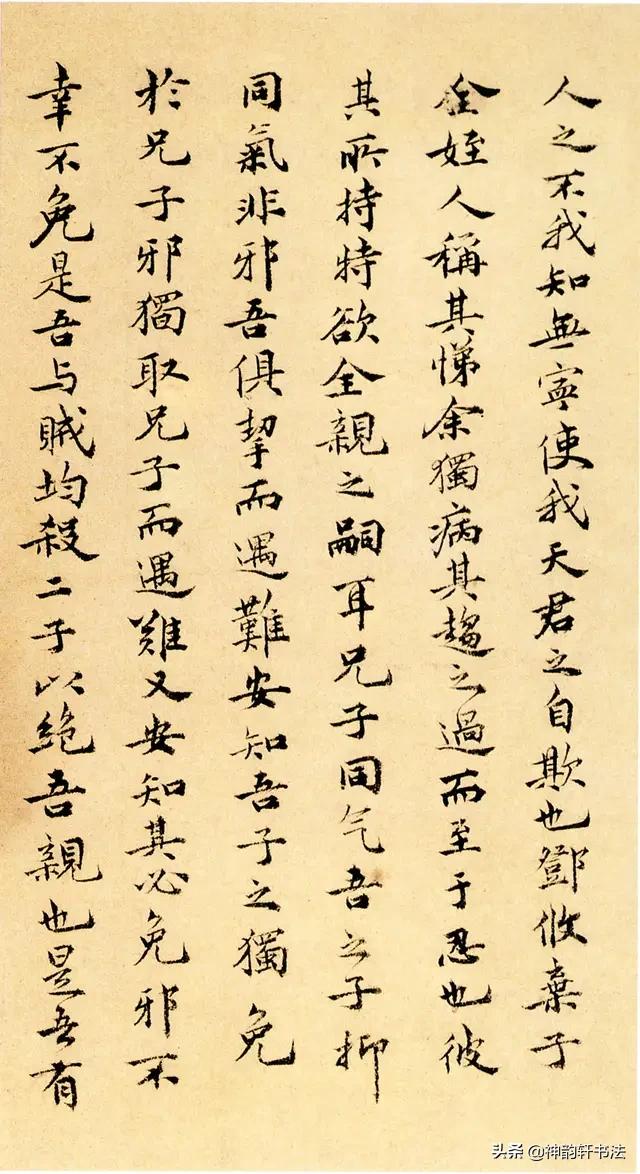 人之不我知無寧使我天君之自欺也鄧攸棄子
全姪人稱其悌余獨病其趨之過而至于忍也彼
其所持特欲全親之嗣耳兄子同气吾之子抑
同氣非邪吾俱挈而遇難安知吾子之獨免
於兄子邪獨取兄子而遇難又安知其必免邪不
幸不免是吾与賊均殺二子以絶吾親也是吾有
头条 @神韵轩书法